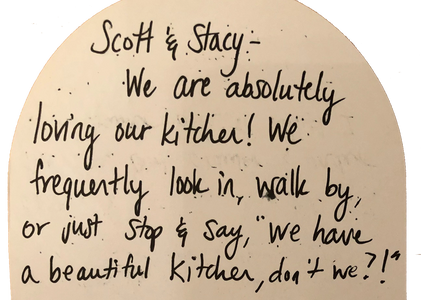 Scott & Stacy-
We are absolutely
loving our kitchen! We
frequently look in, walk by,
or just stop & say, "We have
a beautiful kitchen, don't we?!"